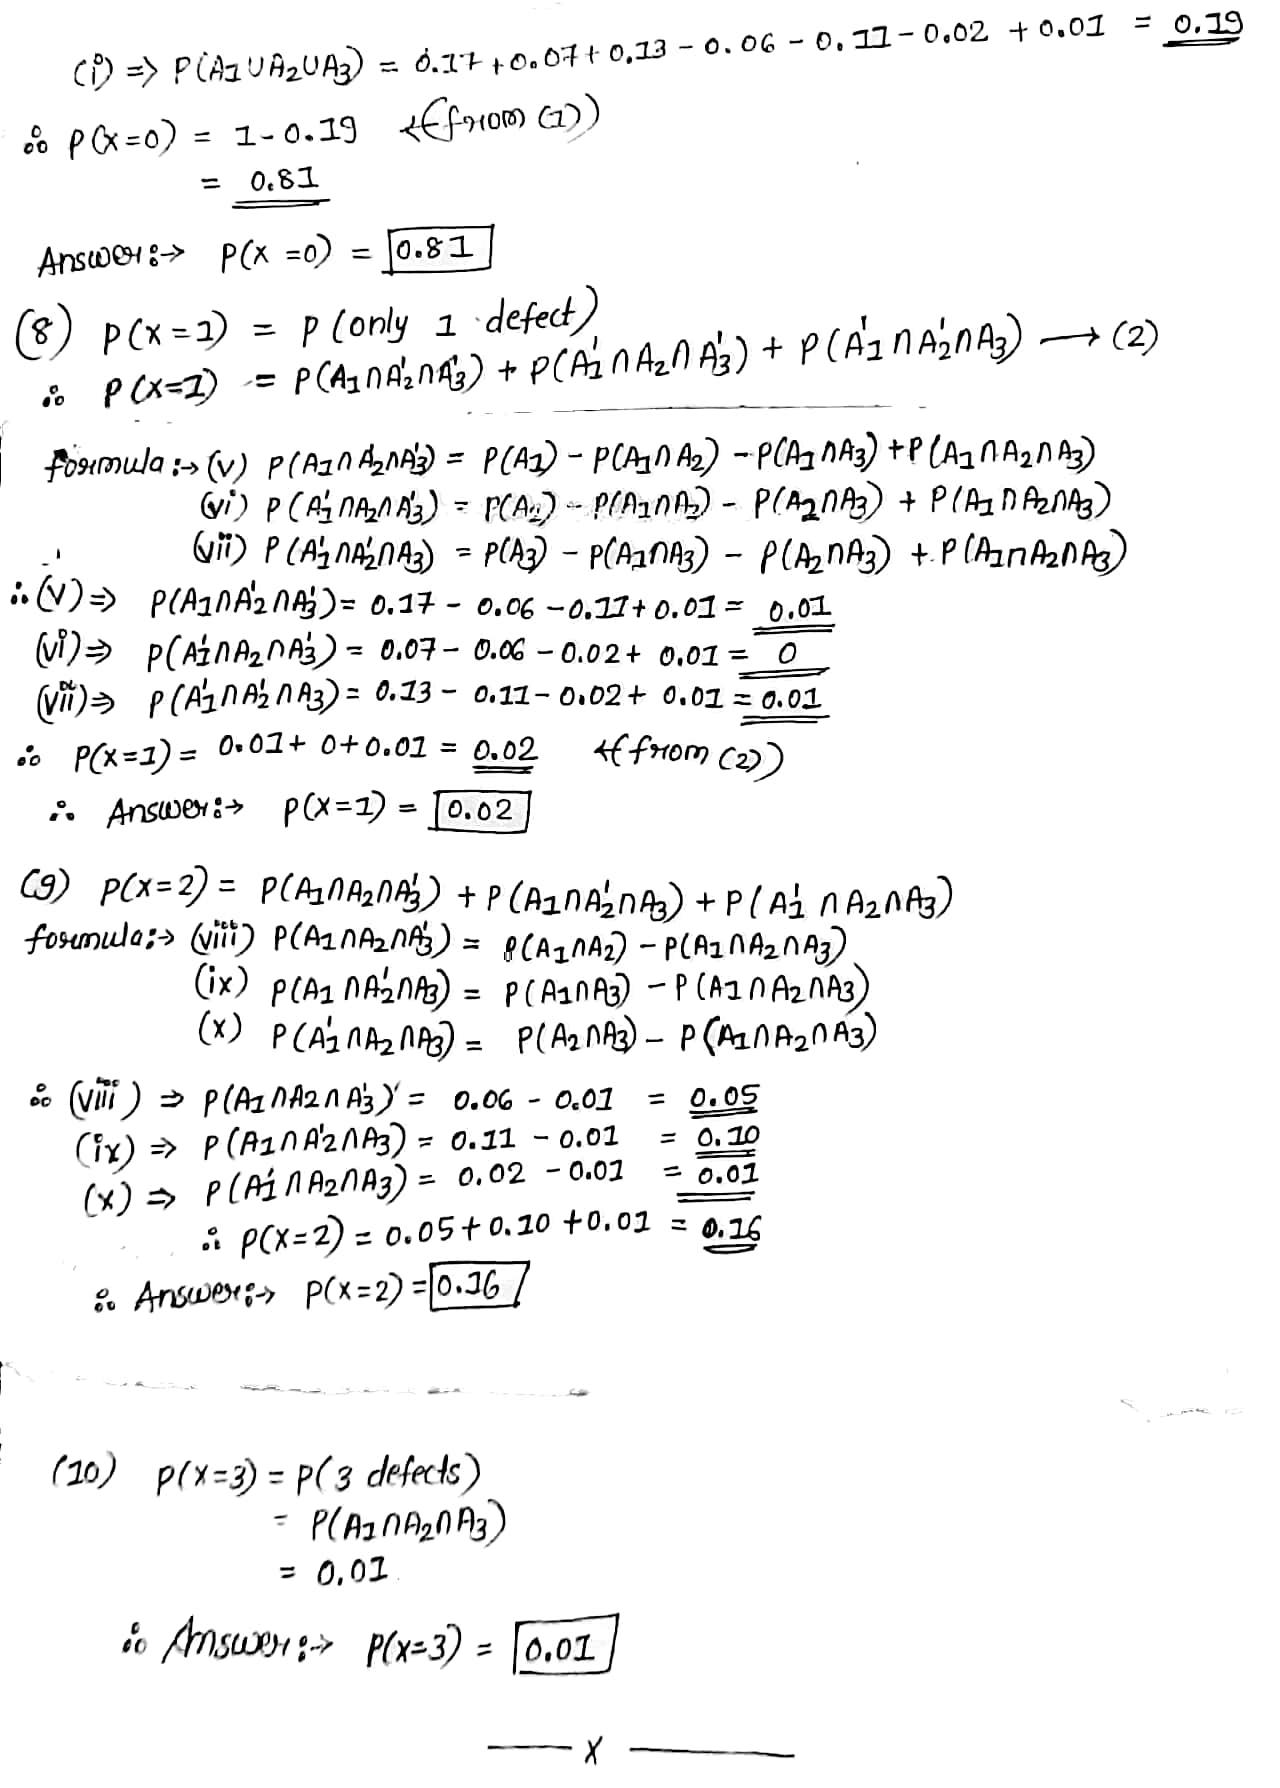 (i) ⇒ P(A1∪A2∪A3) = 0.17+0.07+0.13-0.06-0.11-0.02+0.01 = 0.19
∴ P(X=0) = 1-0.19 (from (1))
= 0.81
Answer:→ P(X=0) = 0.81
(8) P(X=1) = P(only 1 defect)
∴ P(X=1) = P(A1∩A2'∩A3') + P(A1'∩A2∩A3') + P(A1'∩A2'∩A3) → (2)
formula:→ (v) P(A1∩A2'∩A3') = P(A1) - P(A1∩A2) - P(A1∩A3) + P(A1∩A2∩A3)
(vi) P(A1'∩A2∩A3') = P(A2) - P(A1∩A2) - P(A2∩A3) + P(A1∩A2∩A3)
(vii) P(A1'∩A2'∩A3) = P(A3) - P(A1∩A3) - P(A2∩A3) + P(A1∩A2∩A3)
∴ (v) ⇒ P(A1∩A2'∩A3') = 0.17 - 0.06 - 0.11 + 0.01 = 0.01
(vi) ⇒ P(A1'∩A2∩A3') = 0.07 - 0.06 - 0.02 + 0.01 = 0
(vii) ⇒ P(A1'∩A2'∩A3) = 0.13 - 0.11 - 0.02 + 0.01 = 0.01
∴ P(X=1) = 0.01 + 0 + 0.01 = 0.02 (from (2))
∴ Answer:→ P(X=1) = 0.02
(9) P(X=2) = P(A1∩A2∩A3') + P(A1∩A2'∩A3) + P(A1'∩A2∩A3)
formula:→ (viii) P(A1∩A2∩A3') = P(A1∩A2) - P(A1∩A2∩A3)
(ix) P(A1∩A2'∩A3) = P(A1∩A3) - P(A1∩A2∩A3)
(x) P(A1'∩A2∩A3) = P(A2∩A3) - P(A1∩A2∩A3)
∴ (viii) ⇒ P(A1∩A2∩A3') = 0.06 - 0.01 = 0.05
(ix) ⇒ P(A1∩A2'∩A3) = 0.11 - 0.01 = 0.10
(x) ⇒ P(A1'∩A2∩A3) = 0.02 - 0.01 = 0.01
∴ P(X=2) = 0.05 + 0.10 + 0.01 = 0.16
∴ Answer:→ P(X=2) = 0.16
(10) P(X=3) = P(3 defects)
= P(A1∩A2∩A3)
= 0.01
∴ Answer:→ P(X=3) = 0.01
X